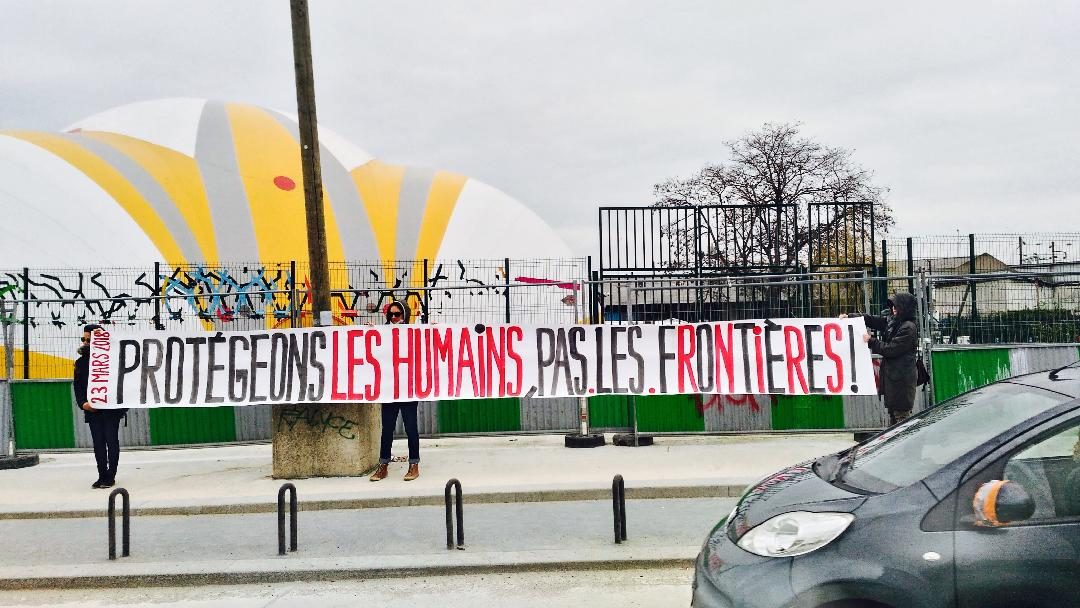 23 MARS 2018
PROTÉGEONS LES HUMAiNS, PAS.LES.FRONTiÈRES!